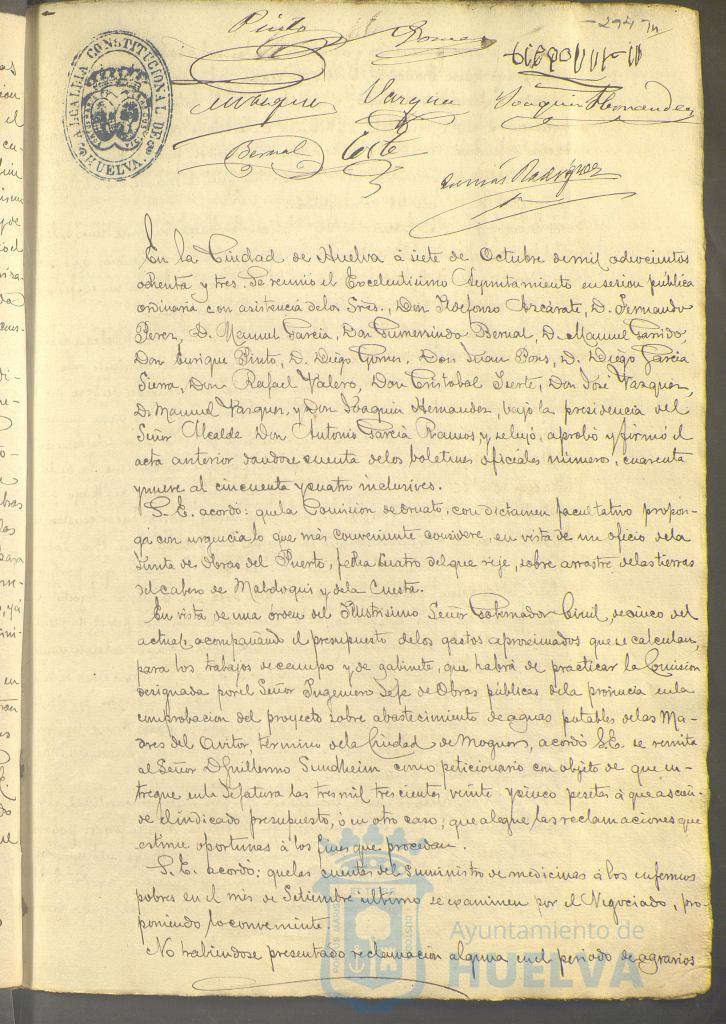 294
Pinto Gomez
M Vazquez Vazquez Joaquin Hernandez
Bernal
Tomás Rodriguez
ALCALDIA CONSTITUCIONAL DE HUELVA.
En la Ciudad de Huelva á siete de Octubre de mil ochocientos
ochenta y tres. Se reunió el Excelentisimo Ayuntamiento en sesion pública
ordinaria con asistencia de los Sres., Don Ildefonso Azcárate, D. Fernando
Perez, D. Manuel Garcia, Don Gumersindo Bernal, D. Manuel Garrido,
Don Enrique Pinto, D. Diego Gomez, Don Juan Pons, D. Diego Garcia
Sierra, Don Rafael Valero, Don Cristobal Iserte, Don José Vazquez,
D. Manuel Vazquez, y Don Joaquin Hernandez, bajo la presidencia del
Señor Alcalde Don Antonio Garcia Ramos y se leyó, aprobó y firmó el
acta anterior dandose cuenta de los boletines oficiales números, cuarenta
y nueve al cincuenta y cuatro inclusives.
S. E. acordó: que la Comision de ornato, con dictamen facultativo propon-
ga con urgencia lo que más conveniente considere, en vista de un oficio de la
Junta de Obras del Puerto, fecha cuatro del que rije, sobre arrastre de las tierras
del cabezo de y de la Cuesta.
En vista de una órden del Ilustrisimo Señor Gobernador Civil, de cinco del
actual, acompañando el presupuesto de los gastos aproximados que se calculan,
para los trabajos de campo y de gabinete, que habrá de practicar la Comision
designada por el Señor Ingeniero Jefe de Obras públicas de la provincia en la
comprobacion del proyecto sobre abastecimiento de aguas potables de las Ma-
dres del Avitor, término de la Ciudad de Moguer, acordó S. E. se remita
al Señor D. Guillermo Sundheim como peticionario con objeto de que en-
tregue en la Jefatura las tres mil trescientas veinte y cinco pesetas á que ascien-
de el indicado presupuesto, ó en otro caso, que alegue las reclamaciones que
estime oportunas á los fines que procedan.
S. E. acordó: que las cuentas del suministro de medicinas á los enfermos
pobres en el mes de Setiembre último se examinen por el Negociado, pro-
poniendo lo conveniente.
No habiendose presentado reclamación alguna en el periodo de agravios
Ayuntamiento de
HUELVA